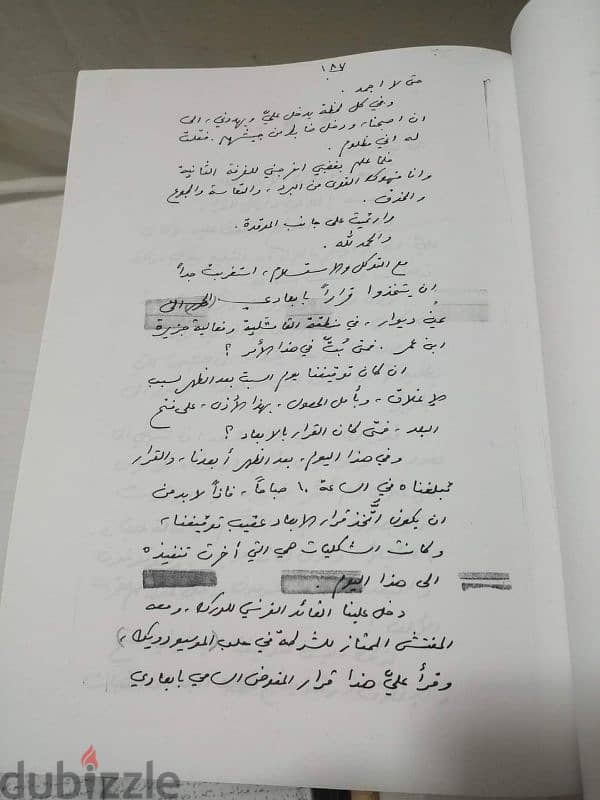 ١٨٧
حتى لا اجمد .
وفي كل لحظة يدخل عليّ ويهددني، الى
ان اصبحنا، ودخل ضابط من جيشهم . فقلت
له اني مظلوم .
فلما علم بغضبي اخرجني للغرفة الثانية
وانا منهوك القوى من البرد، والتعاسة والجوع
والخوف .
وارتميت على جانب الموقدة .
والحمد لله .
مع التوكل والاستسلام، استغربت جداً
ان يتخذوا قراراً بابعادي الى
عين ديوار، في منطقة القامشلية ونهاية جزيرة
ابن عمر . فمتى بُتّ في هذا الأمر ؟
ان كان توقيفنا يوم السبت بعد الظهر بسبب
الإغلاق، وبأمل الحصول، بهذا الأذى، على فتح
البلد، فمتى كان القرار بالابعاد ؟
وفي هذا اليوم، بعد الظهر أبعدنا، والقرار
تبلغناه في الساعة ١٠ صباحاً، فاذاً لا بد من
ان يكون اتُّخذ قرار الابعاد عقيب توقيفنا،
وكانت الشكليات هي التي أخرت تنفيذه
الى هذا اليوم .
دخل علينا القائد الفرنسي للدرك، ومعه
المفتش الممتاز للشرطة في حلب (الموسيو
وقرأ عليّ هذا قرار المفوض السامي بابعادي
dubizzle